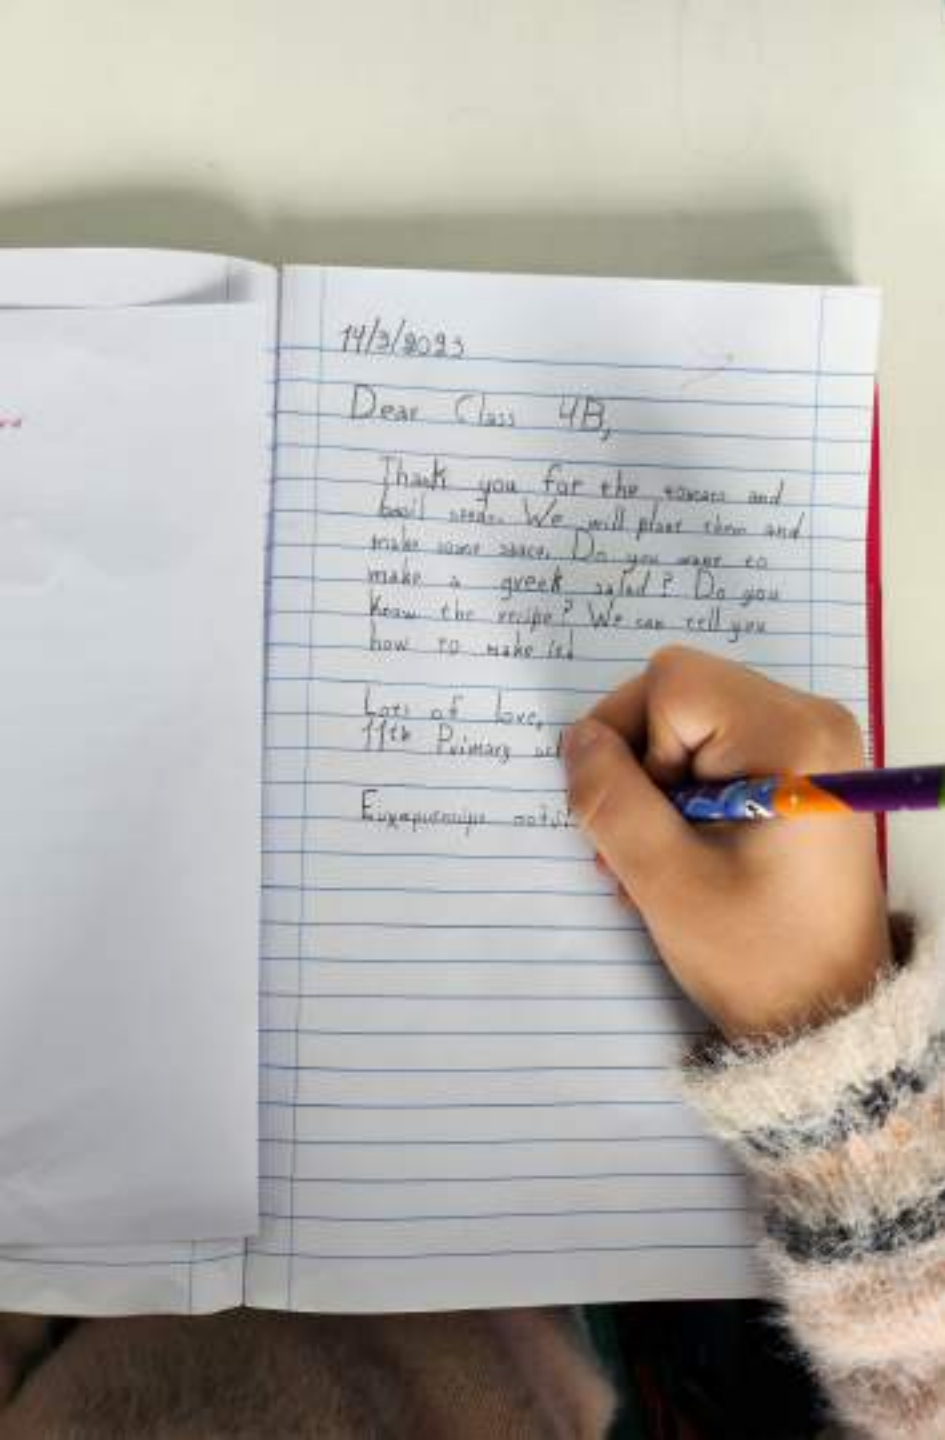 14/3/2023
Dear Class 4B,
Thank you for the tomato and
basil seeds. We will plant them and
make some sauce. Do you want to
make a greek salad? Do you
know the recipe? We can tell you
how to make it!
Lots of love,
11th Primary
Ευχαριστούμε